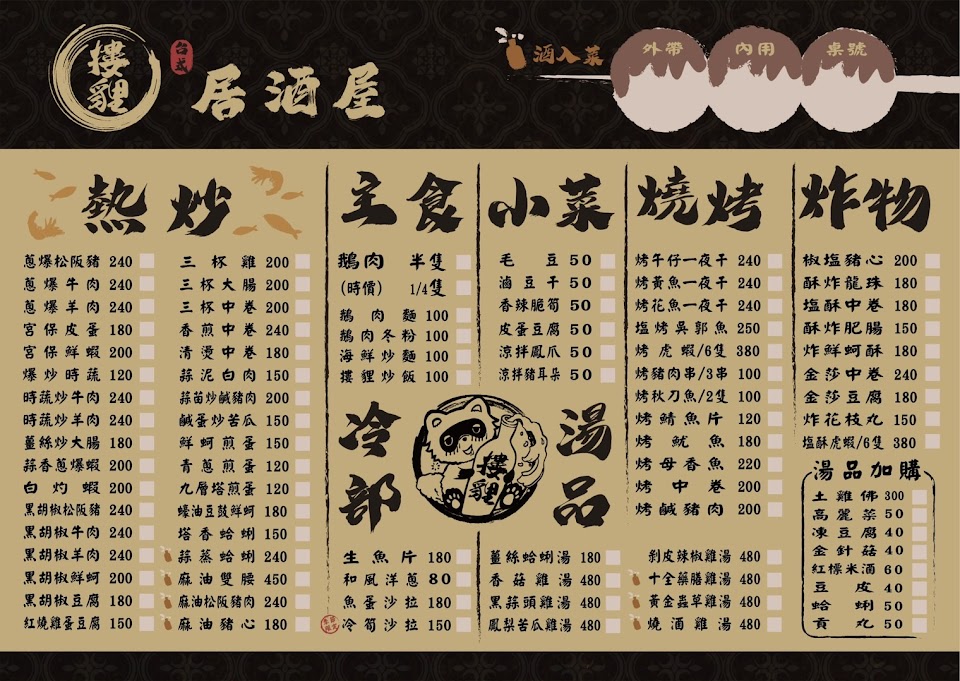 摟貍
台式
居酒屋
酒入菜
外帶
內用
桌號
熱炒
蔥爆松阪豬 240
蔥爆牛肉 240
蔥爆羊肉 240
宮保皮蛋 180
宮保鮮蝦 200
爆炒時蔬 120
時蔬炒牛肉 240
時蔬炒羊肉 240
薑絲炒大腸 180
蒜香蔥爆蝦 200
白灼蝦 200
黑胡椒松阪豬 240
黑胡椒牛肉 240
黑胡椒羊肉 240
黑胡椒鮮蚵 200
黑胡椒豆腐 180
紅燒雞蛋豆腐 150
三杯雞 200
三杯大腸 200
三杯中卷 200
香煎中卷 240
清燙中卷 180
蒜泥白肉 150
蒜苗炒鹹豬肉 200
鹹蛋炒苦瓜 150
鮮蚵煎蛋 150
青蔥煎蛋 120
九層塔煎蛋 120
蠔油豆豉鮮蚵 180
塔香蛤蜊 150
蒜蒸蛤蜊 240
麻油雙腰 450
麻油松阪豬肉 240
麻油豬心 180
主食
鵝肉 半隻
(時價) 1/4隻
鵝肉麵 100
鵝肉冬粉 100
海鮮炒麵 100
摟貍炒飯 100
小菜
毛豆 50
滷豆干 50
香辣脆筍 50
皮蛋豆腐 50
涼拌鳳爪 50
涼拌豬耳朵 50
冷部
生魚片 180
和風洋蔥 80
魚蛋沙拉 180
冷筍沙拉 150
摟貍
湯品
薑絲蛤蜊湯 180
香菇雞湯 480
黑蒜頭雞湯 480
鳳梨苦瓜雞湯 480
剝皮辣椒雞湯 480
十全藥膳雞湯 480
黃金蟲草雞湯 480
燒酒雞湯 480
燒烤
烤午仔一夜干 240
烤黃魚一夜干 240
烤花魚一夜干 240
塩烤吳郭魚 250
烤虎蝦/6隻 380
烤豬肉串/3串 100
烤秋刀魚/2隻 100
烤鯖魚片 120
烤魷魚 180
烤母香魚 220
烤中卷 200
烤鹹豬肉 200
炸物
椒塩豬心 200
酥炸龍珠 180
塩酥中卷 180
酥炸肥腸 150
炸鮮蚵酥 180
金莎中卷 240
金莎豆腐 180
炸花枝丸 150
塩酥虎蝦/6隻 380
湯品加購
土雞佛 300
高麗菜 50
凍豆腐 40
金針菇 40
紅標米酒 60
豆皮 40
蛤蜊 50
貢丸 50